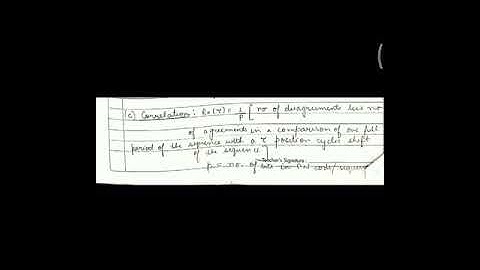 (c) Correlation: Rx(τ) = 1/P [no of disagreements less no
of agreements in a comparison of one full
period of the sequence with a τ position cyclic shift
of the sequence]
Teacher's Signature
P = no. of bits in PN code/sequence